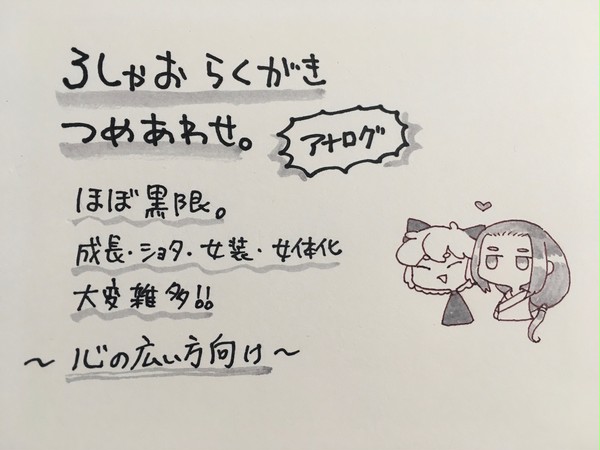 ろしゃお らくがき
つめあわせ。
アナログ
ほぼ黒限。
成長・ショタ・女装・女体化
大変雑多!!
～心の広い方向け～